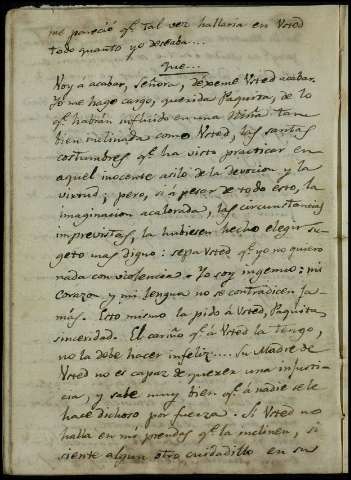 me pareció q.e tal vez hallaria en Usted
todo quanto yo deseaba...
Yre...
Voy á acabar, Señora, déxeme Usted acabar.
Yo me hago cargo, querida Paquita, de lo
q.e habrán influido en una Niña tan
bien inclinada como Usted, las santas
costumbres q.e ha visto practicar en
aquel inocente asilo de la devocion y la
virtud; pero, si á pesar de todo esto, la
imaginacion acalorada, las circunstancias
imprevistas, la hubiesen hecho elegir su-
geto mas digno: sepa Usted q.e yo no quiero
nada con violencia. Yo soy ingenuo: mi
corazon y mi lengua no se contradicen ja-
más. Esto mismo la pido á Usted, Paquita
sinceridad. El cariño q.e á Usted la tengo,
no la debe hacer infeliz.... Su Madre de
Usted no es capaz de querer una injusti-
cia, y sabe muy bien q.e á nadie se le
hace dichoso por fuerza. Si Usted no
halla en mí prendas q.e la inclinen, si
siente algun otro cuidadillo en su